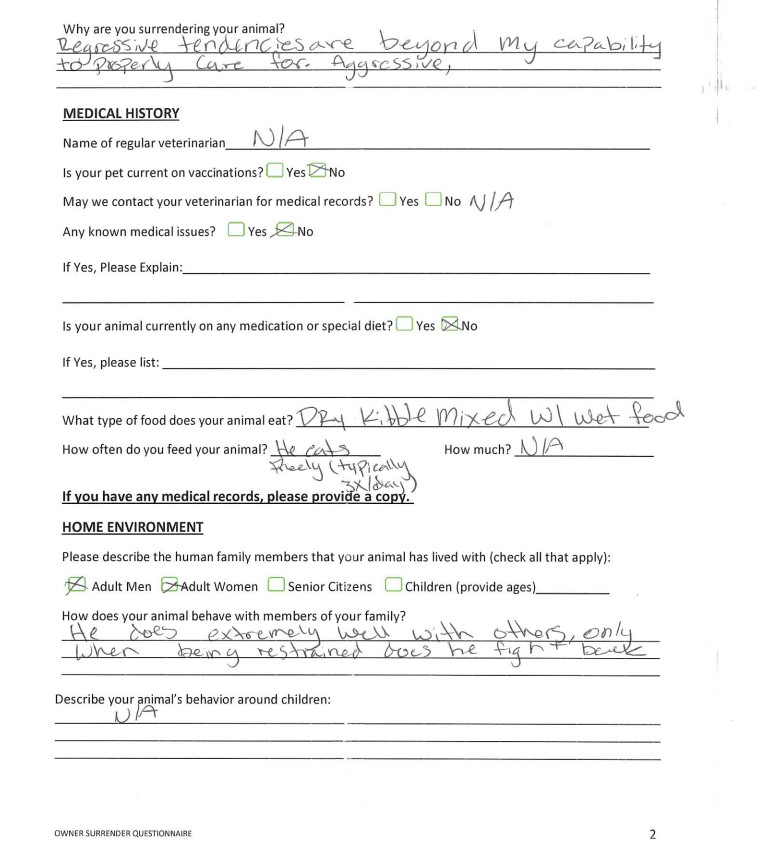 Why are you surrendering your animal?
Regressive tendencies are beyond my capability
to properly care for. Aggressive,
MEDICAL HISTORY
Name of regular veterinarian N/A
Is your pet current on vaccinations? Yes No
May we contact your veterinarian for medical records? Yes No N/A
Any known medical issues? Yes No
If Yes, Please Explain:
Is your animal currently on any medication or special diet? Yes No
If Yes, please list:
What type of food does your animal eat? Dry Kibble Mixed W/ wet food
How often do you feed your animal? He eats How much? N/A
freely (typically
3x/day)
If you have any medical records, please provide a copy.
HOME ENVIRONMENT
Please describe the human family members that your animal has lived with (check all that apply):
Adult Men Adult Women Senior Citizens Children (provide ages)
How does your animal behave with members of your family?
He does extremely well with others, only
When being restrained does he fight back
Describe your animal's behavior around children:
N/A
OWNER SURRENDER QUESTIONNAIRE 2